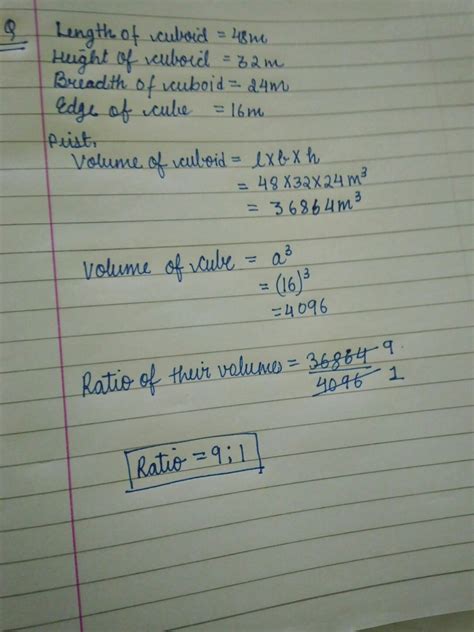 Q Length of cuboid = 48m
Height of cuboid = 32m
Breadth of cuboid = 24m
Edge of cube = 16m
Volume of cuboid = l×b×h
= 48×32×24m³
= 36864m³
Volume of cube = a³
= (16)³
= 4096
Ratio of their volumes = 36864 9
4096 1
Ratio = 9;1